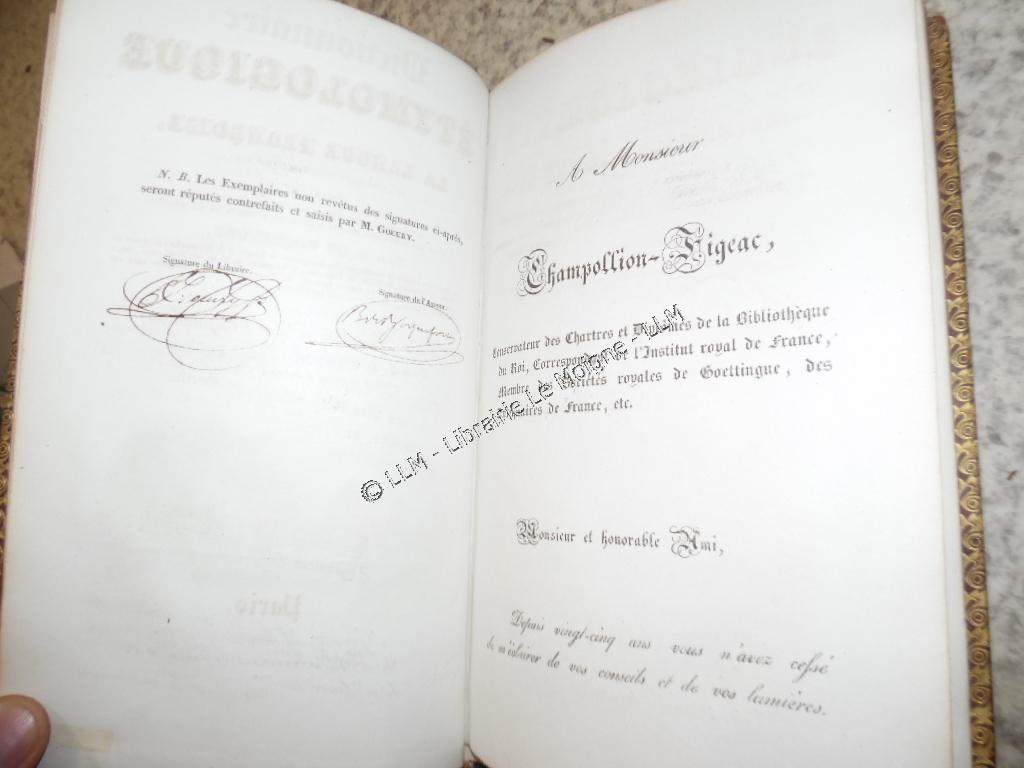 N. B. Les Exemplaires non revêtus des signatures ci-après,
seront réputés contrefaits et saisis par M. GOEURY.
Signature du Libraire.
Signature de l'Auteur.
A Monsieur
Champollion-Figeac,
Conservateur des Chartres et Diplomes de la Bibliothèque
du Roi, Correspondant de l'Institut royal de France,
Membre des Sociétés royales de Goettingue, des
Antiquaires de France, etc.
Monsieur et honorable Ami,
Depuis vingt-cinq ans vous n'avez cessé
de m'éclairer de vos conseils et de vos lumières.
© LLM - Librairie Le Moigne - LLM